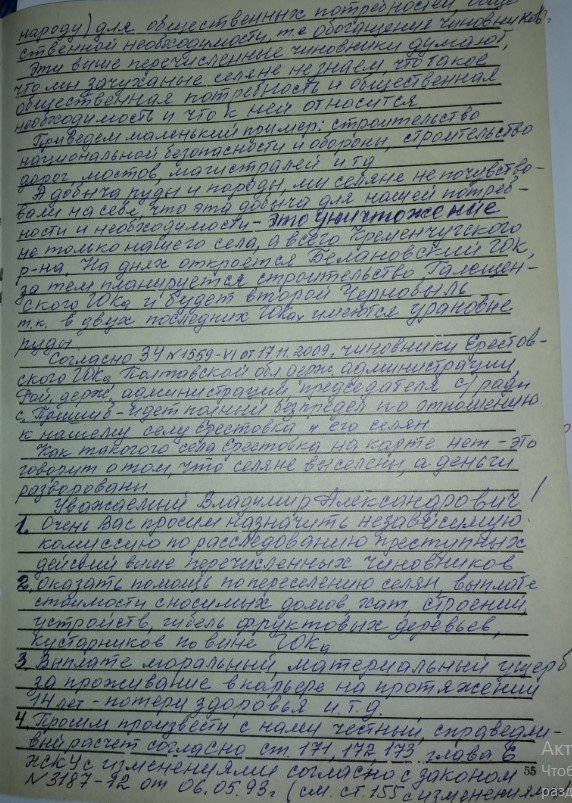 народу) для общественных потребностей обще
ственной необходимости, т.е обогащения чиновников.
Эти выше перечисленные чиновники думают,
что мы зачуханые селяне не знаем, что такое
общественная потребность и общественная
необходимость и что к ней относится
Приведем маленький пример: строительство
национальной безопасности и обороны, строительство
дорог, мостов, магистралей и т.д
А добыча руды и породы, мы селяне не почувство-
вали на себе, что эта добыча для нашей потреб-
ности и необходимости - это уничтожение
не только нашего села, а всего Кременчугского
р-на. На днях откроется Белановский ГОК,
за тем планируется строительство Галещен-
ского ГОКа и будет второй Чернобыль
т.к. в двух последних ГОКах имеются урановые
руды
Согласно ЗУ N 1559-VI от 17.11.2009, чиновники Еристов-
ского ГОКа, Полтавской обл держ, администрации,
рай держ, администрации председателя с/рады
с. Пришиб - идет полный беспредел по отношению
к нашему селу Еристовка и его селян
Как такого села Еристовка на карте нет - это
говорит о том, что селяне выселены, а деньги
разворованы
Уважаемый Владимир Александрович!
1. Очень Вас просим назначить независимую
комиссию по расследованию преступных
действий выше перечисленных чиновников
2. Оказать помощь по переселению селян, выплате
стоимости сносимых домов, хат, строений
устройств, гибель фруктовых деревьев,
кустарников по вине ГОКа
3. Выплате моральный, материальный ущерб
за проживание в карьере на протяжении
14 лет - потери здоровья и т.д.
4. Просим произвести с нами честный, справедли-
вый расчет согласно ст 171, 172, 173 глава 6
ЖСКУ с изменениями согласно с законом
N 3187-12 от 06.05.93г (см. ст. 155 с изменениями
55
Акт
Чтоб
разд